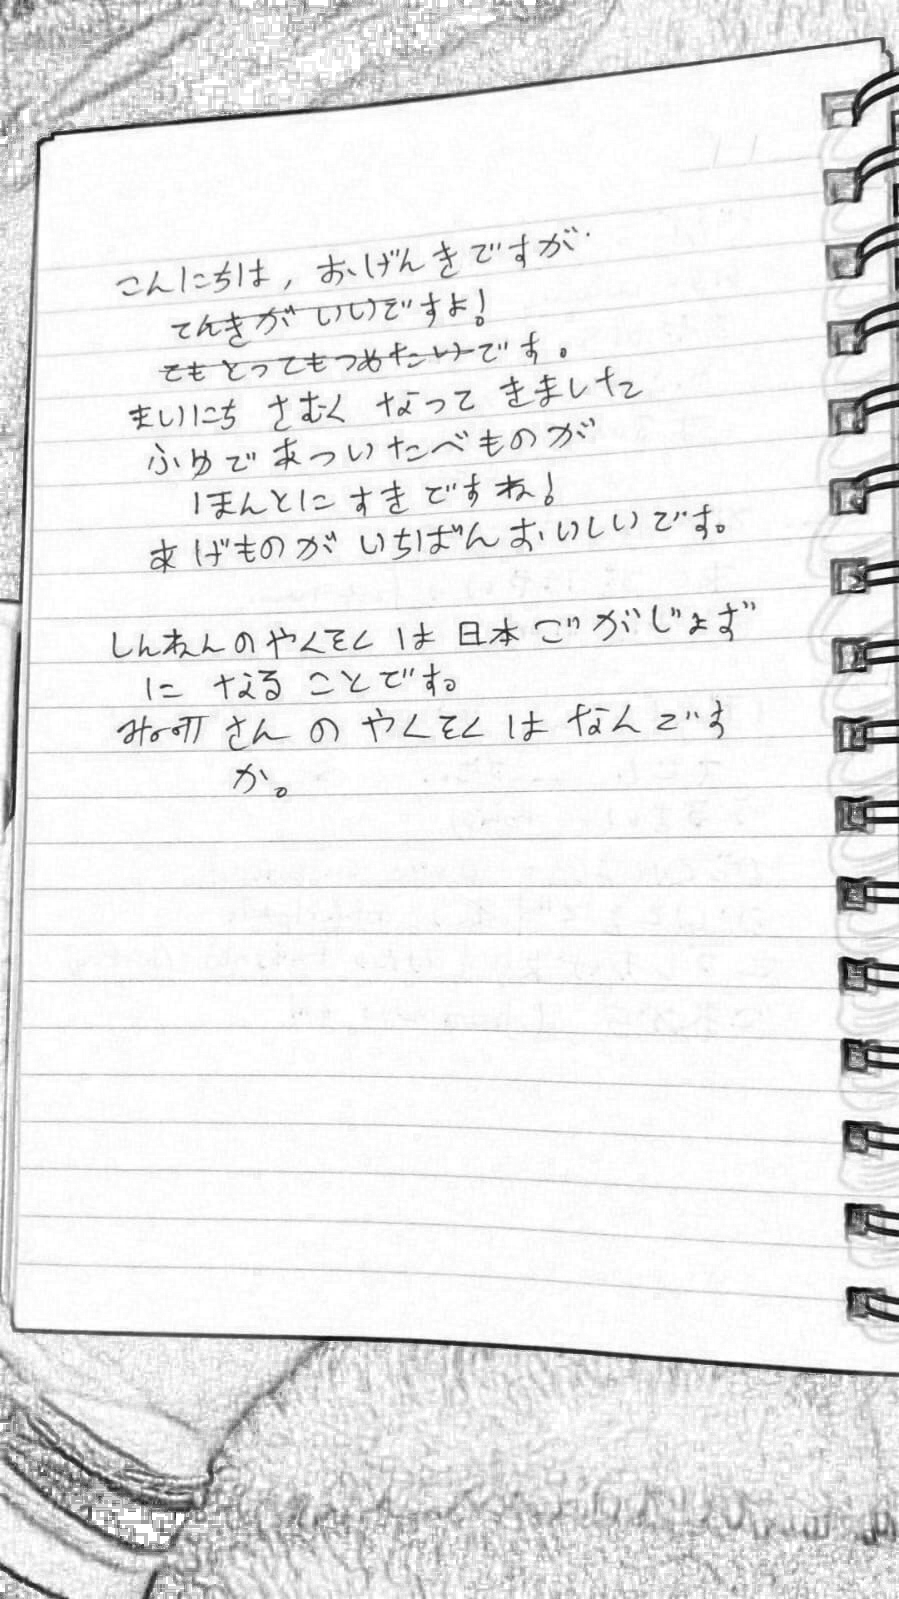 こんにちは, おげんきですが.
てんきが いいですよ!
てもとってもつめたいです。
まいにち さむく なって きました
ふゆで あついたべものが
ほんとに すきですね!
あげものが いちばん おいしいです。
しんねんの やくそく は 日本ごが じょまず
に なる ことです。
さん の やくそく は なんです
か。